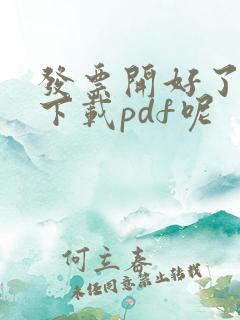 發票開好了
下載pdf呢
何立春
未经同意禁止转载